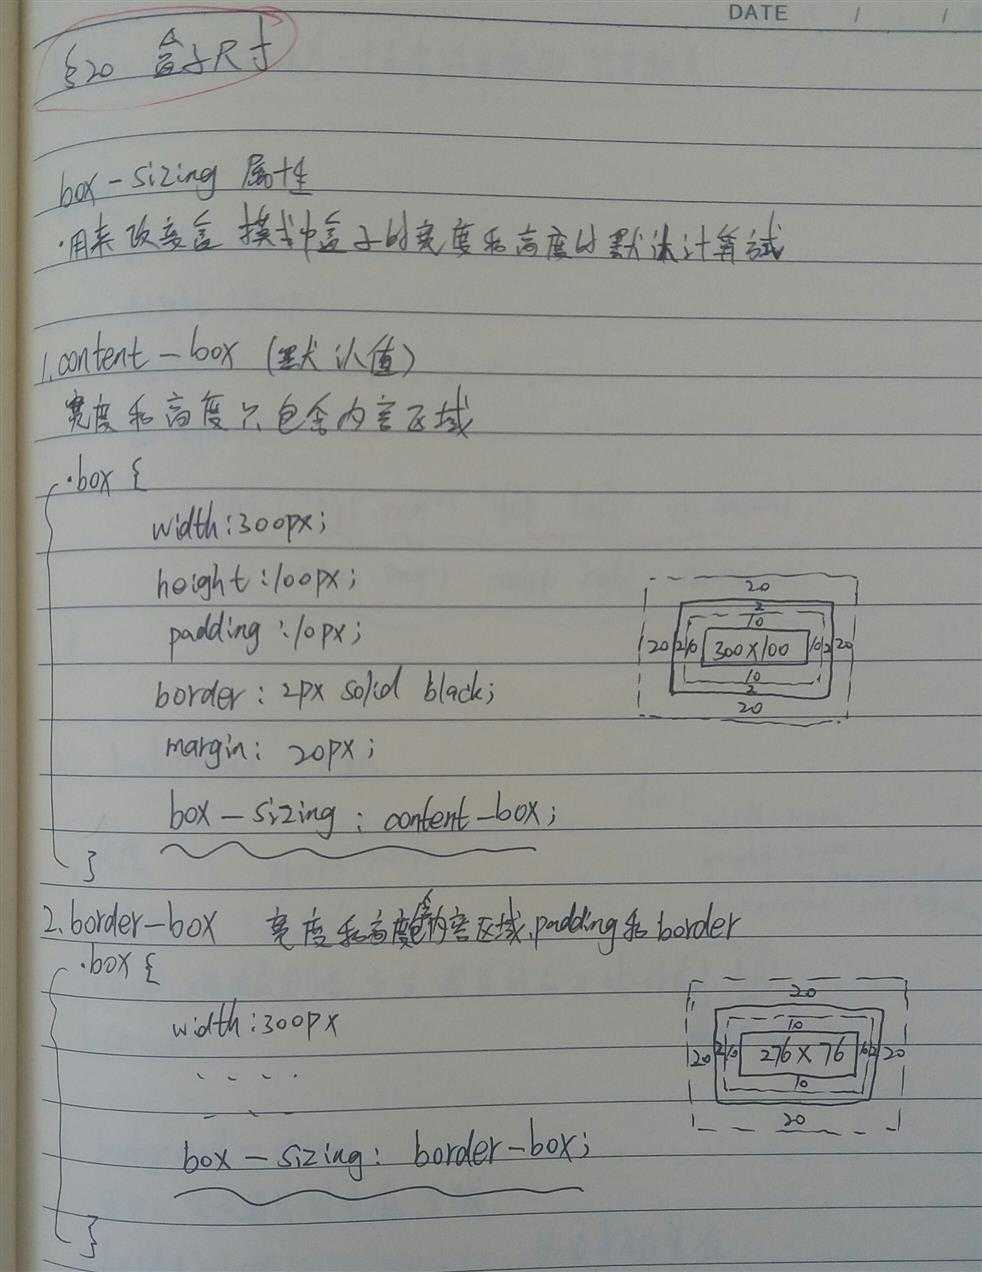 DATE / /
§20 盒子尺寸
box-sizing 属性
·用来改变盒模式中盒子的宽度和高度的默认计算试
1.content-box (默认值)
宽度和高度只包含内容区域
.box {
width:300px;
height:100px;
padding:10px;
border: 2px solid black;
margin: 20px;
box-sizing: content-box;
}
20
2
10
20 2 10 300×100 10 2 20
10
2
20
2.border-box 宽度和高度包含内容区域、padding和border
.box {
width:300px
....
....
box-sizing: border-box;
}
20
10
20 2 10 276×76 10 2 20
10
20